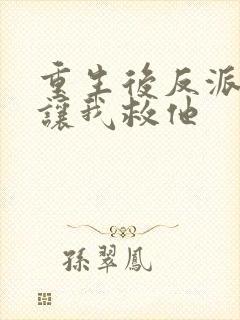 重生後反派
讓我救他
孫翠鳳